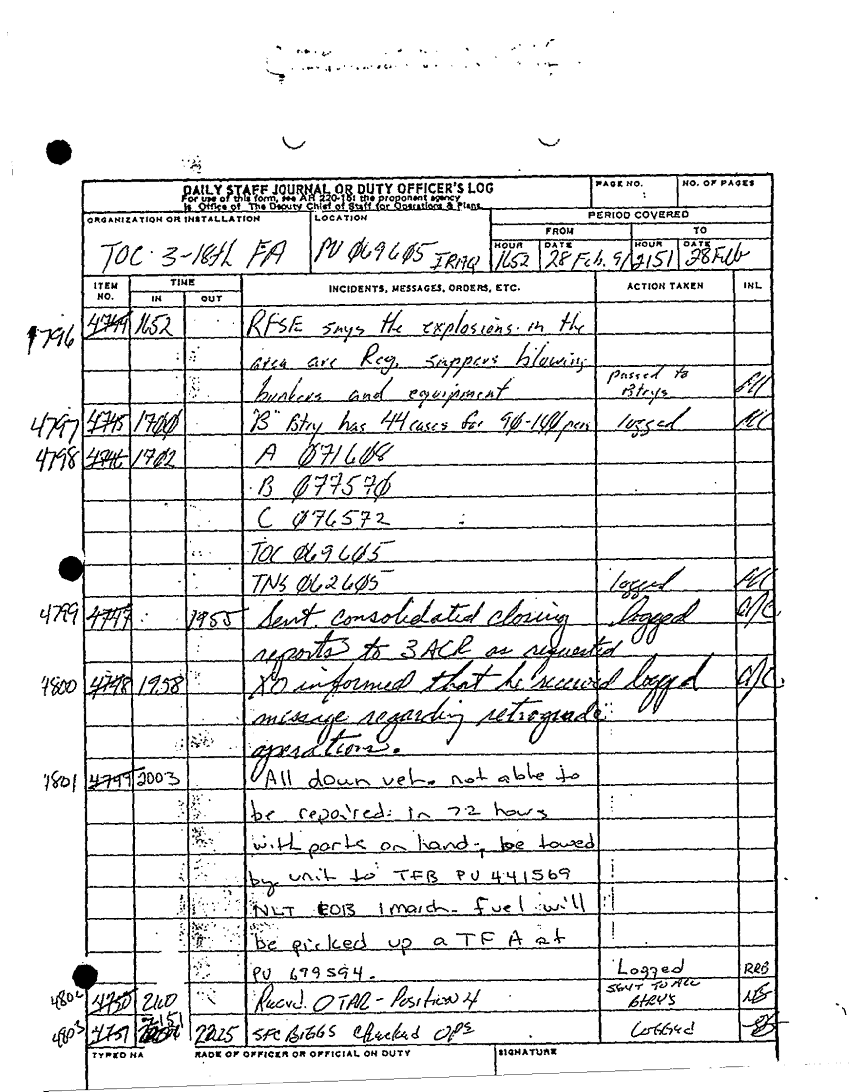 DAILY STAFF JOURNAL OR DUTY OFFICER'S LOG
For use of this form, see AR 220-151 the proponent agency
is Office of The Deputy Chief of Staff for Operations & Plans.
PAGE NO. NO. OF PAGES
ORGANIZATION OR INSTALLATION LOCATION PERIOD COVERED
FROM TO
HOUR DATE HOUR DATE
TOC 3-18th FA PU Ø696Ø5 IRAQ 1652 28 Feb. 91 2151 28 Feb
ITEM NO. TIME INCIDENTS, MESSAGES, ORDERS, ETC. ACTION TAKEN INL
IN OUT
4796 4744 1652 RFSE says the explosions in the
area are Reg. sappers blowing
bunkers and equipment passed to Btrys
4797 4745 17ØØ "B" Btry has 44 cases for 9Ø-1ØØ pers logged
4798 4746 17Ø2 A Ø716Ø8
B Ø7757Ø
C Ø76572
TOC Ø696Ø5
TNS Ø626Ø5 logged
4799 4747 1955 Sent consolidated closing logged
reports to 3ACR as requested
4800 4748 1958 XO informed that he received logged
message regarding retrograde
operations.
4801 4749 2003 All down veh. not able to
be repaired in 72 hours
with parts on hand, be towed
by unit to TFB PU 441569
NLT EOB 1 march. fuel will
be picked up a TF A at
PU 699594. Logged RRB
4802 4750 2100 Recvd. OTAR - Position 4 SENT TO ALL BTRYS
4803 4751 2151 2225 SFC BIGGS checked OPS Logged
TYPED NA RADE OF OFFICER OR OFFICIAL ON DUTY SIGNATURE